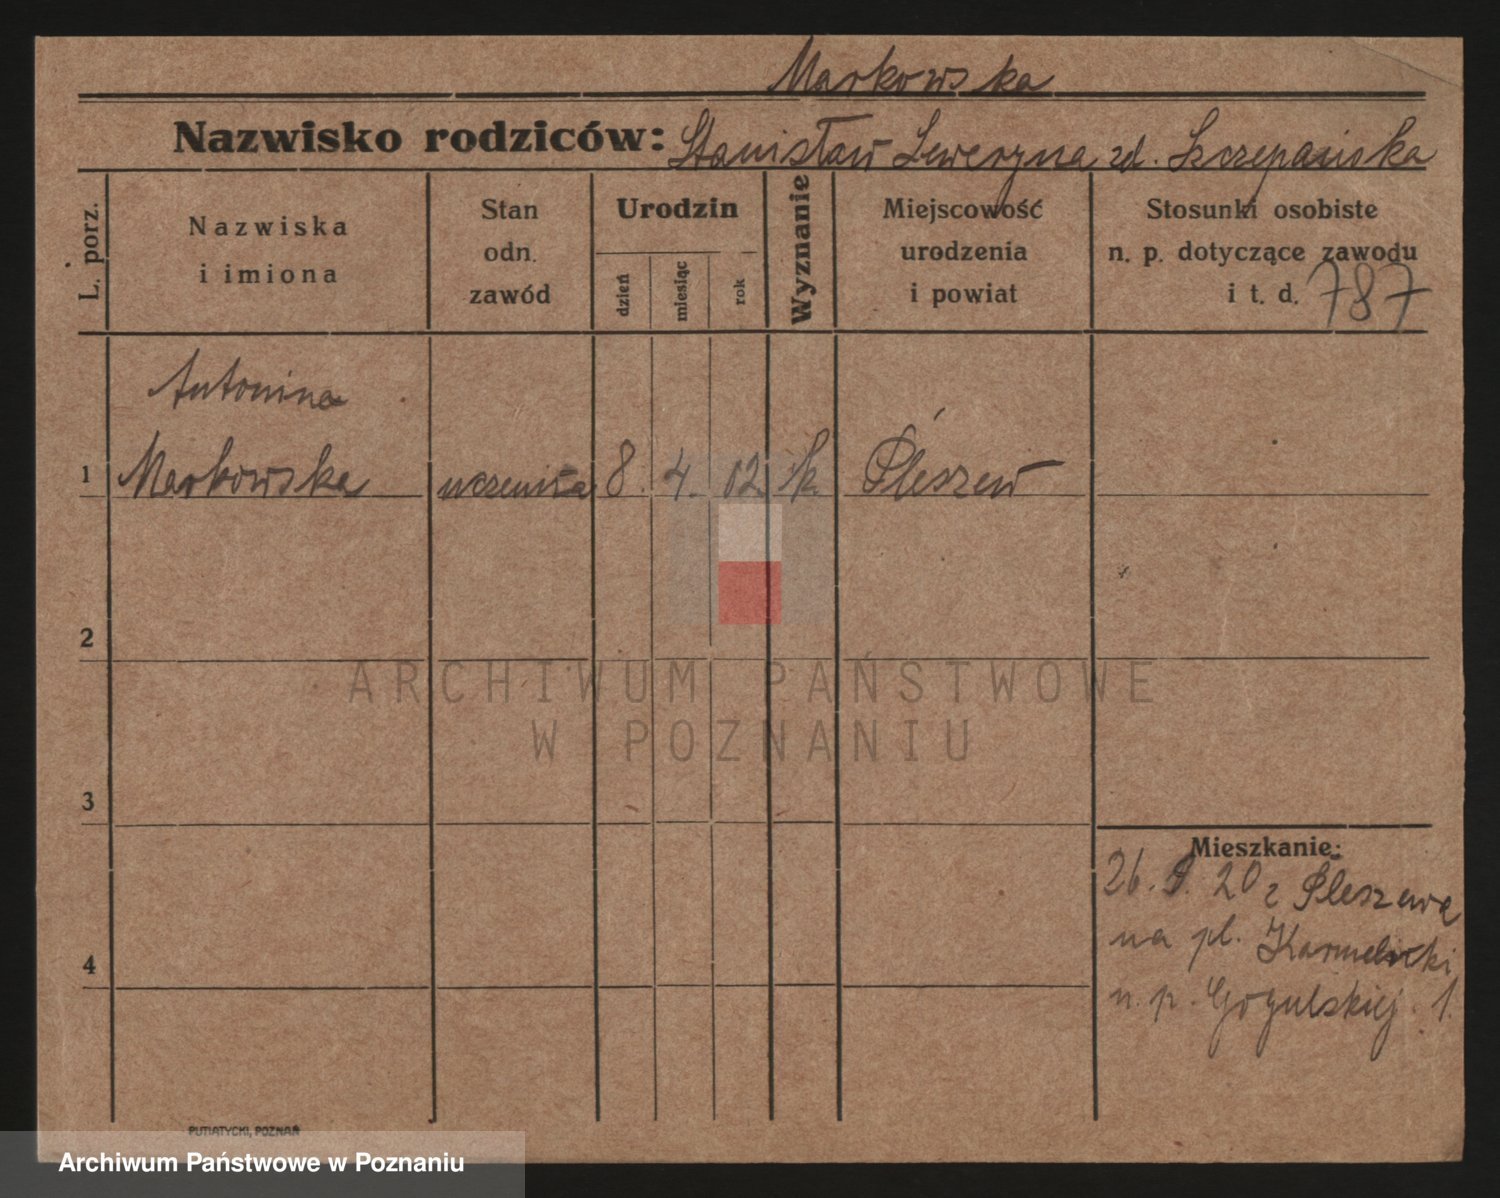 Markowska
Nazwisko rodziców: Stanisław Seweryna zd. Szczepańska
L. porz.
Nazwiska
i imiona
Stan
odn.
zawód
Urodzin
dzień
miesiąc
rok
Wyznanie
Miejscowość
urodzenia
i powiat
Stosunki osobiste
n. p. dotyczące zawodu
i t. d. 787
Antonina
1 Markowska uczenica 8. 4. 02. k. Pleszew
2
ARCHIWUM PAŃSTWOWE
W POZNANIU
3
Mieszkanie:
26. 20 z Pleszewa
na pl. Karmelicki
4
n. p. Gogulskiej. 1.
PUTIATYCKI, POZNAŃ
Archiwum Państwowe w Poznaniu